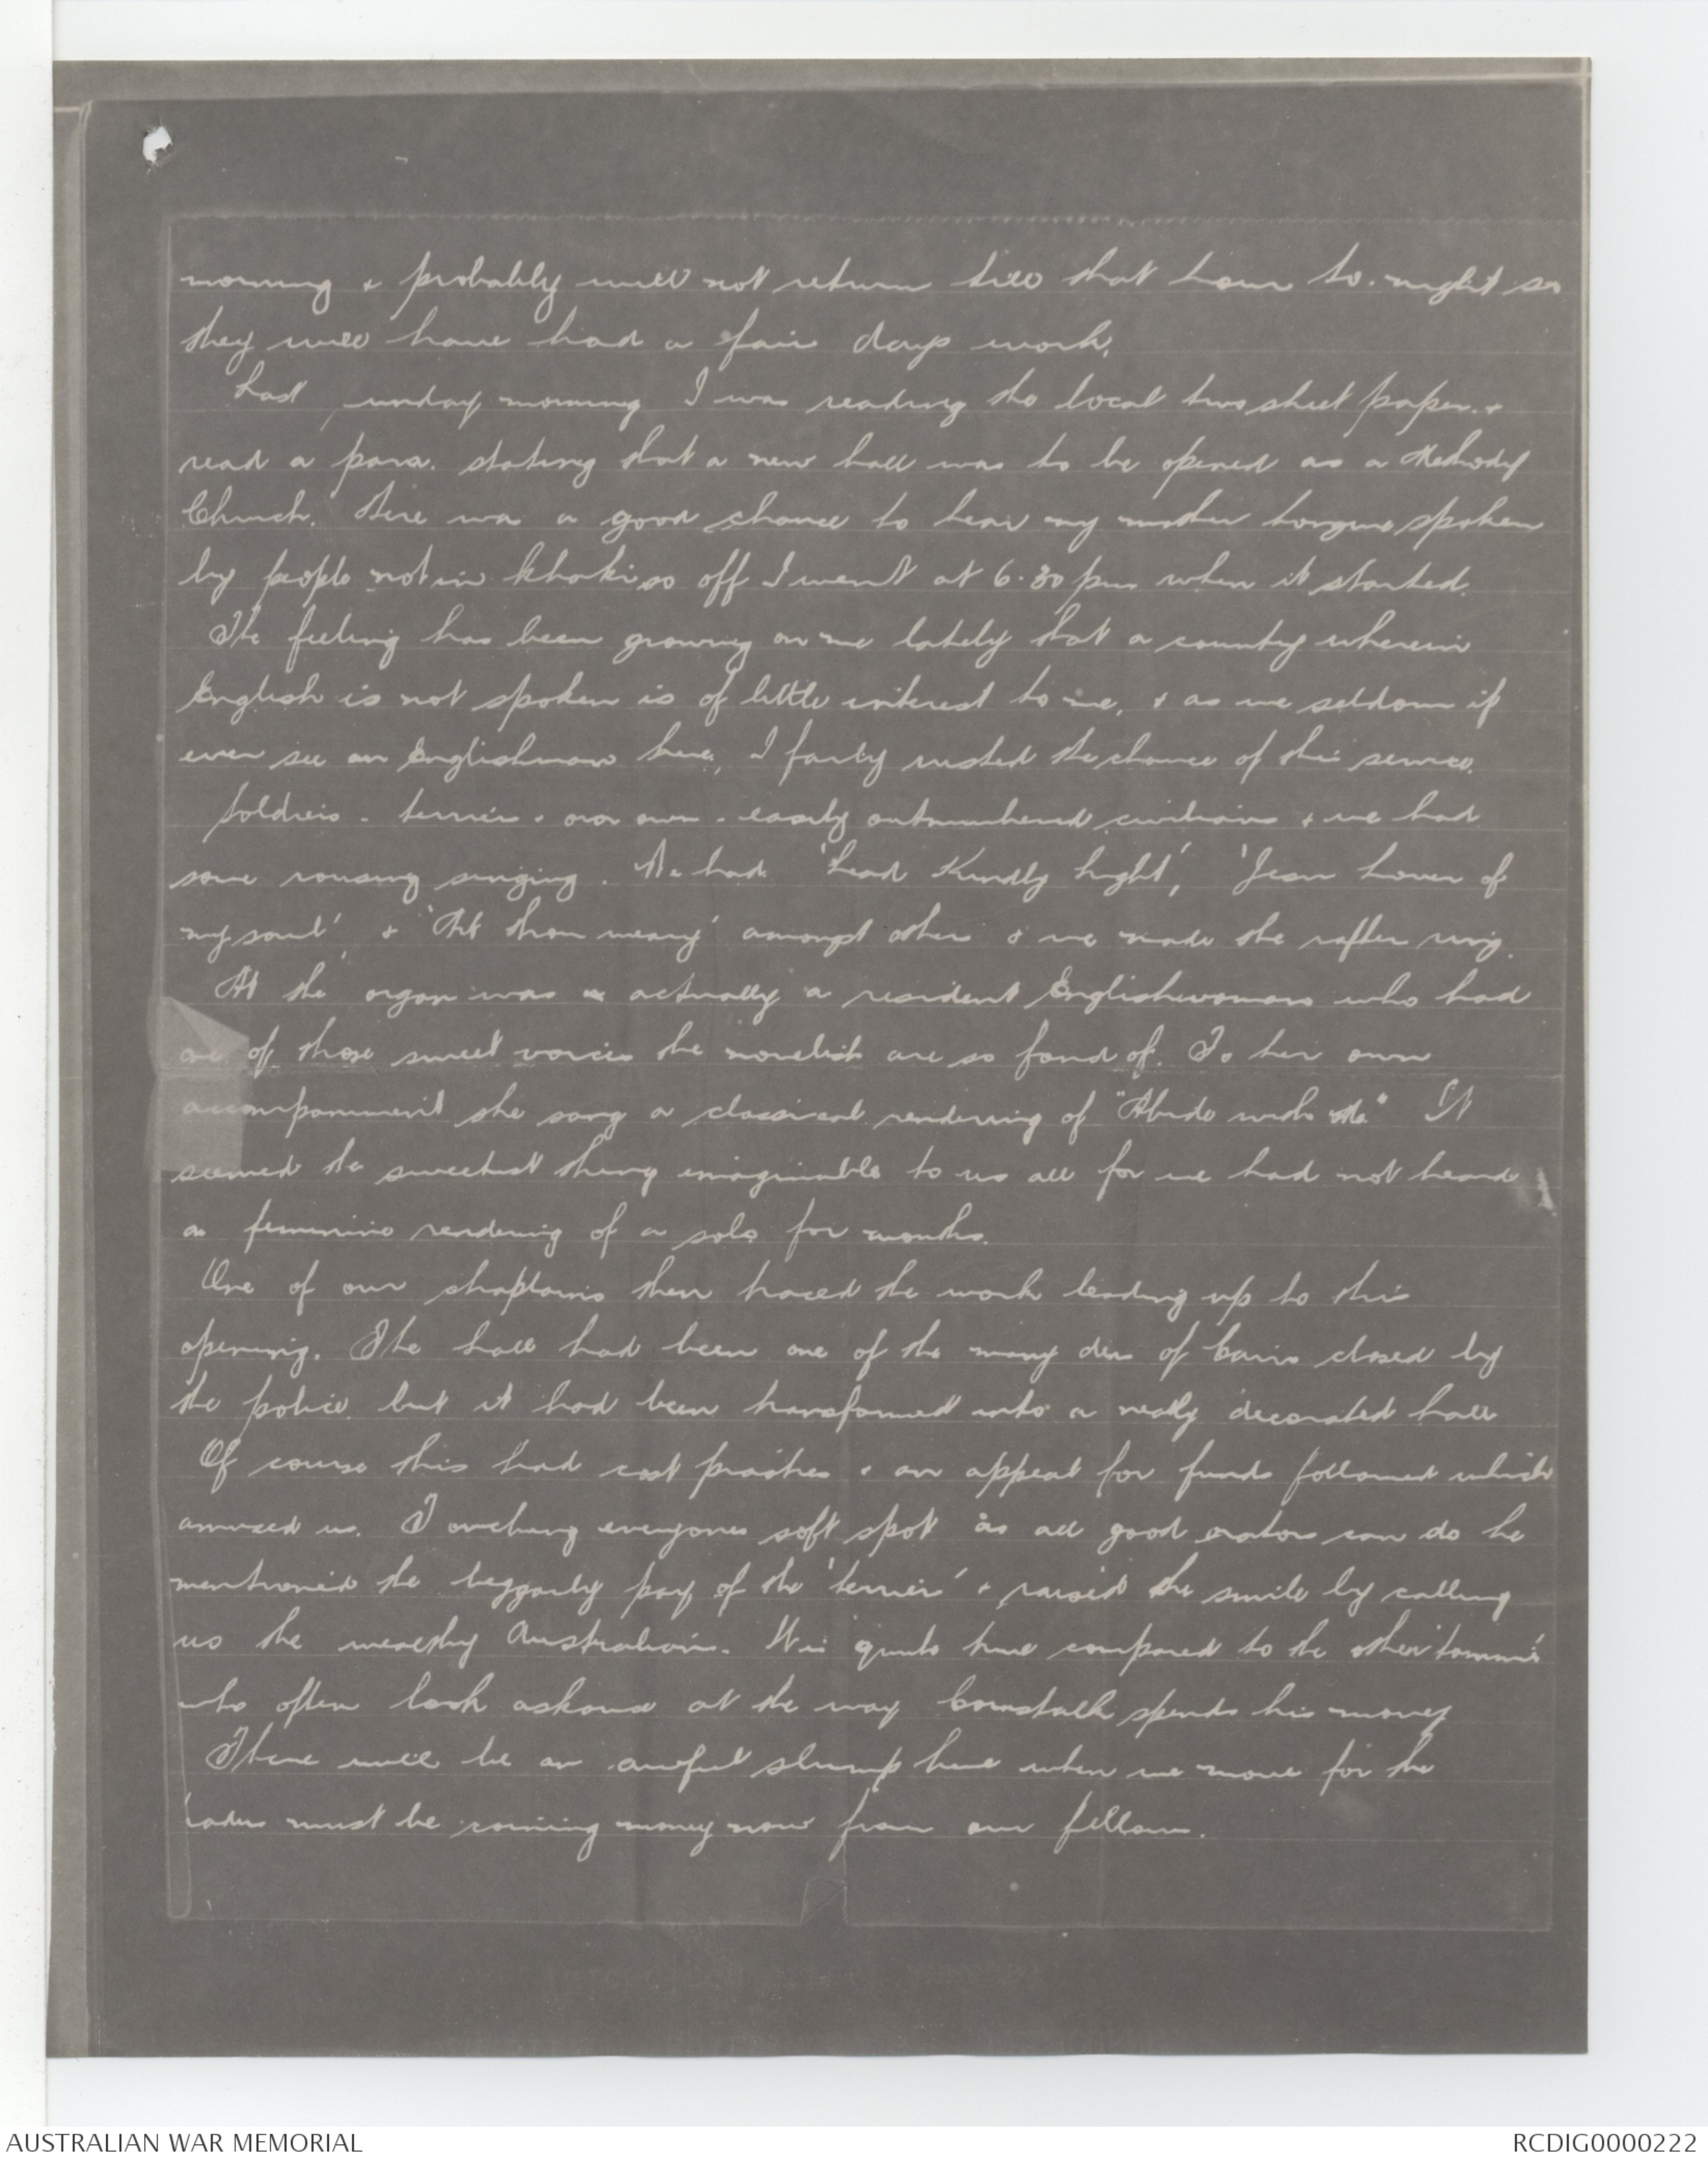 morning & probably will not return till that hour to-night so
they will have had a fair days work.
Last Sunday morning I was reading the local two sheet paper &
read a para. stating that a new hall was to be opened as a Methody
Church. Here was a good chance to hear my mother tongue spoken
by people not in khaki so off I went at 6.30 pm when it started.
The feeling has been growing on me lately that a country wherein
English is not spoken is of little interest to me, & as we seldom if
ever see an Englishman here, I fairly rushed the chance of this service.
Soldiers - terriers & our own - easily outnumbered civilians & we had
some rousing singing. We had 'Lead Kindly Light', 'Jesu Lover of
my soul' & 'Art thou weary' amongst others & we made the rafter ring.
At the organ was actually a resident Englishwoman who had
one of those sweet voices the novelists are so fond of. To her own
accompaniment she sang a classical rendering of "Abide with Me" It
seemed the sweetest thing imaginable to us all for we had not heard
a feminine rendering of a solo for months.
One of our chaplains then traced the work leading up to this
opening. The hall had been one of the many dens of Cairo closed by
the police but it had been transformed into a neatly decorated hall
Of course this had cost piastres & an appeal for funds followed which
amused us. Touching everyones soft spot as all good orators can do he
mentioned the beggarly pay of the 'terriers' & raised the smile by calling
us the wealthy Australians. It is quite true compared to the other tommies
who often look askance at the way Cornstalk spends his money
There will be an awful slump here when we move for the
traders must be coining money now from our fellows.
AUSTRALIAN WAR MEMORIAL
RCDIG0000222